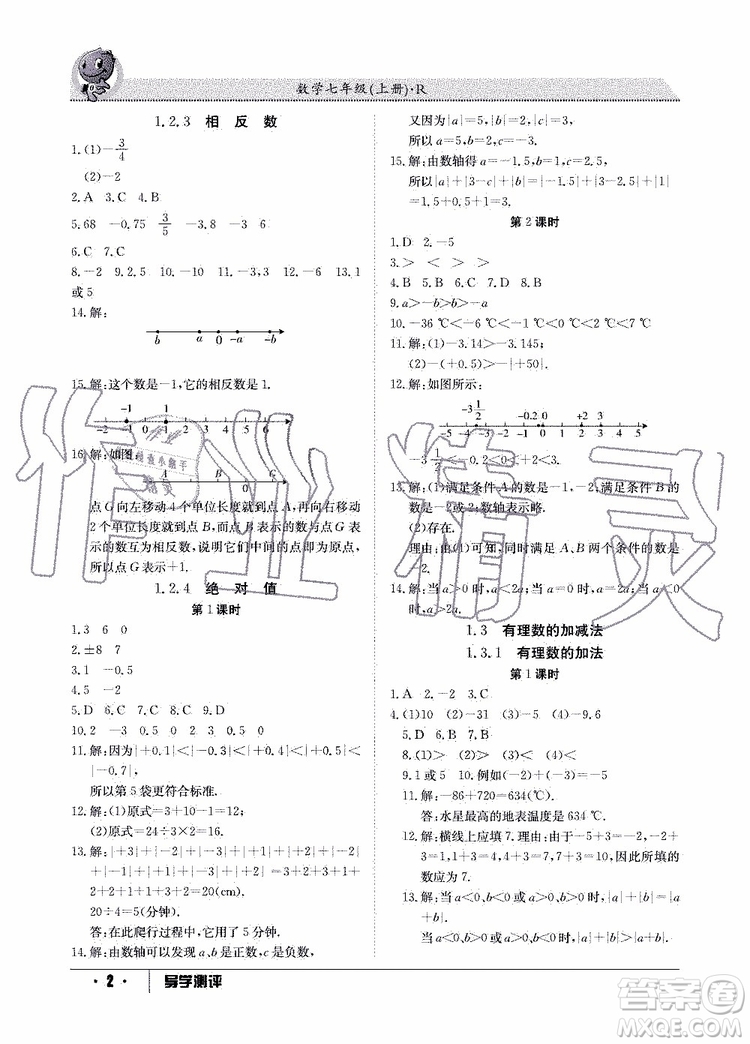 数学七年级(上册)·R
1.2.3 相反数
1.(1)-3/4
(2)-2
2.A 3.C 4.B
5.68 -0.75 3/5 -3.8 -3 6
6.C 7.C
8.-2 9.2.5 10.-0 11.-3 12.-6 13.1
或5
14.解:
b a 0 -a -b
15.解:这个数是-1,它的相反数是1.
-1 1
-2 -1 0 1 2 3 4 5 6
16.解:如图
A B G
点G向左移动4个单位长度就到点A,再向右移动
2个单位长度就到点B,而点B表示的数与点G表
示的数互为相反数,说明它们中间的点是原点,
所以点G表示+1.
1.2.4 绝对值
第1课时
1.3 6 0
2.±8 7
3.1 -0.5
4.5 -2
5.D 6.C 7.B 8.C 9.D
10.2 -3 0.5 0 2 3 0.5 0
11.解:因为|+0.1|<|-0.3|<|+0.2|<
|-0.7|,
所以第5袋更符合标准.
12.解:(1)原式=3+10-1=12;
(2)原式=24÷3×2=16.
13.解:|+3|+|-2|+|-3|+|+1|+|-2|+
|+2|+|-3|+|+3|+|-1|=3+2+3+
1+2+2+3+3+1=20(cm).
20÷4=5(分钟).
答:在此爬行过程中,它用了5分钟.
14.解:由数轴可以发现a,b是正数,c是负数,
又因为|a|=5,|b|=2,|c|=3,
所以a=5,b=2,c=-3.
15.解:由数轴得a=-1.5,b=1,c=2.5,
所以|a|+|3-c|-|b|=|-1.5|+|0.5|-|1|
=1.5+0.5-1=1.
第2课时
1.D 2.-5
3.> < < >
4.B 5.A 6.B 7.C 8.C
9.a>-b>b>-a
10.-36 ℃<-6 ℃<-1 ℃<0 ℃<2 ℃
11.解:(1)-3.14>-3.145;
(2)-(-0.3)<|-0.5|.
12.解:如图所示:
-3 1/2 -0.2 0 +2 3
-5 -4 -3 -2 -1 0 1 2 3 4 5
-3 1/2<-0.2<0<+2<3.
13.解:(1)满足条件A的数是-2;满足条件B的
数是-2或2;数轴表示略.
(2)存在.
理由:由(1)可知,同时满足A,B两个条件的数是
-2.
1.3 有理数的加减法
1.3.1 有理数的加法
第1课时
1.A 2.-2 3.C
4.(1)10 (2)-31 (3)-5 (4)-9.6
5.D 6.D 7.B
8.(1)> (2)> (3)< (4)<
9.1或5 10.例如(-2)+(-3)=-5
11.解:-86+720=634(℃).
答:水星最高的地表温度是634 ℃.
12.解:横线上应填7.理由:由于-5+3=-2,
3+1=4,1+(-4)=-3,所以此题所填的
数应为7.
13.解:当a<0,b<0或a>0,b>0时,|a|+|b|=|a+
b|.
当a>0,b<0或a<0,b>0时,|a|+|b|>|a+b|.
2 导学测评
作业精灵
答案圈
MXQE.COM